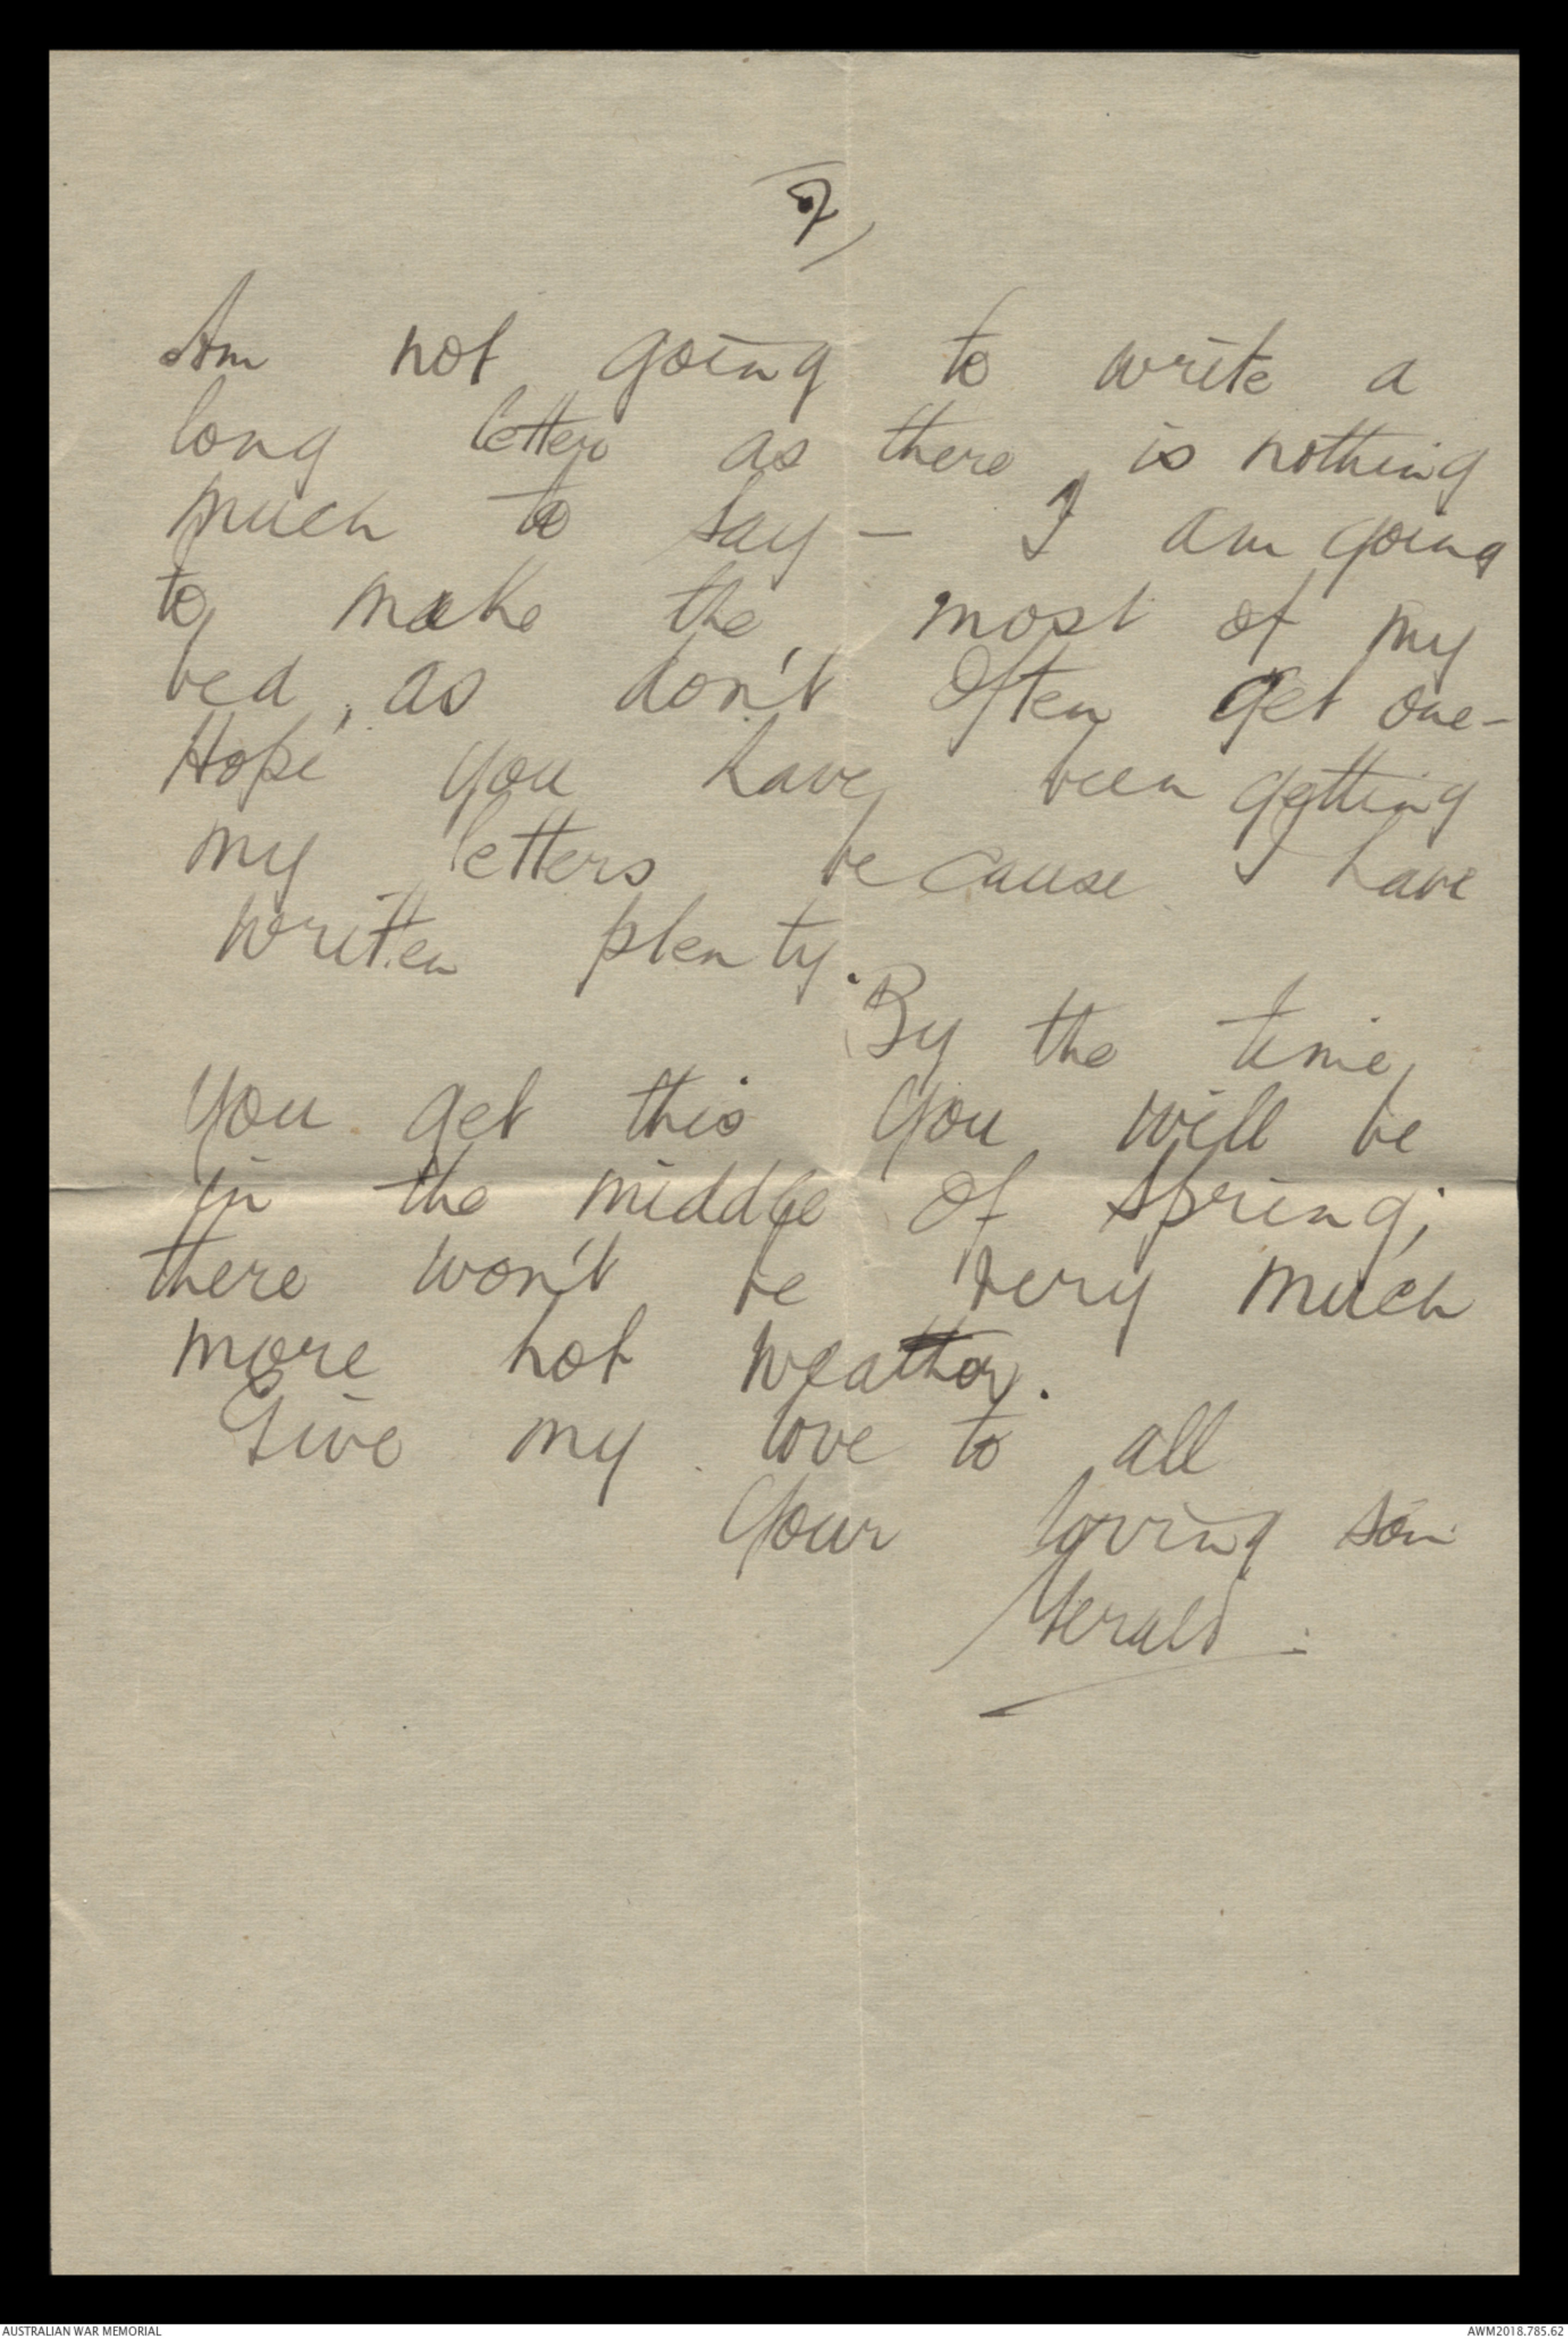 Am not going to write a
long letter as there is nothing
much to say - I am going
to make the most of my
bed, as don't often get one -
Hope you have been getting
my letters because I have
written plenty.
By the time
you get this you will be
in the middle of spring;
there won't be very much
more hot weather.
Give my love to all
Your loving son
Gerald.
AUSTRALIAN WAR MEMORIAL
AWM2018.785.62